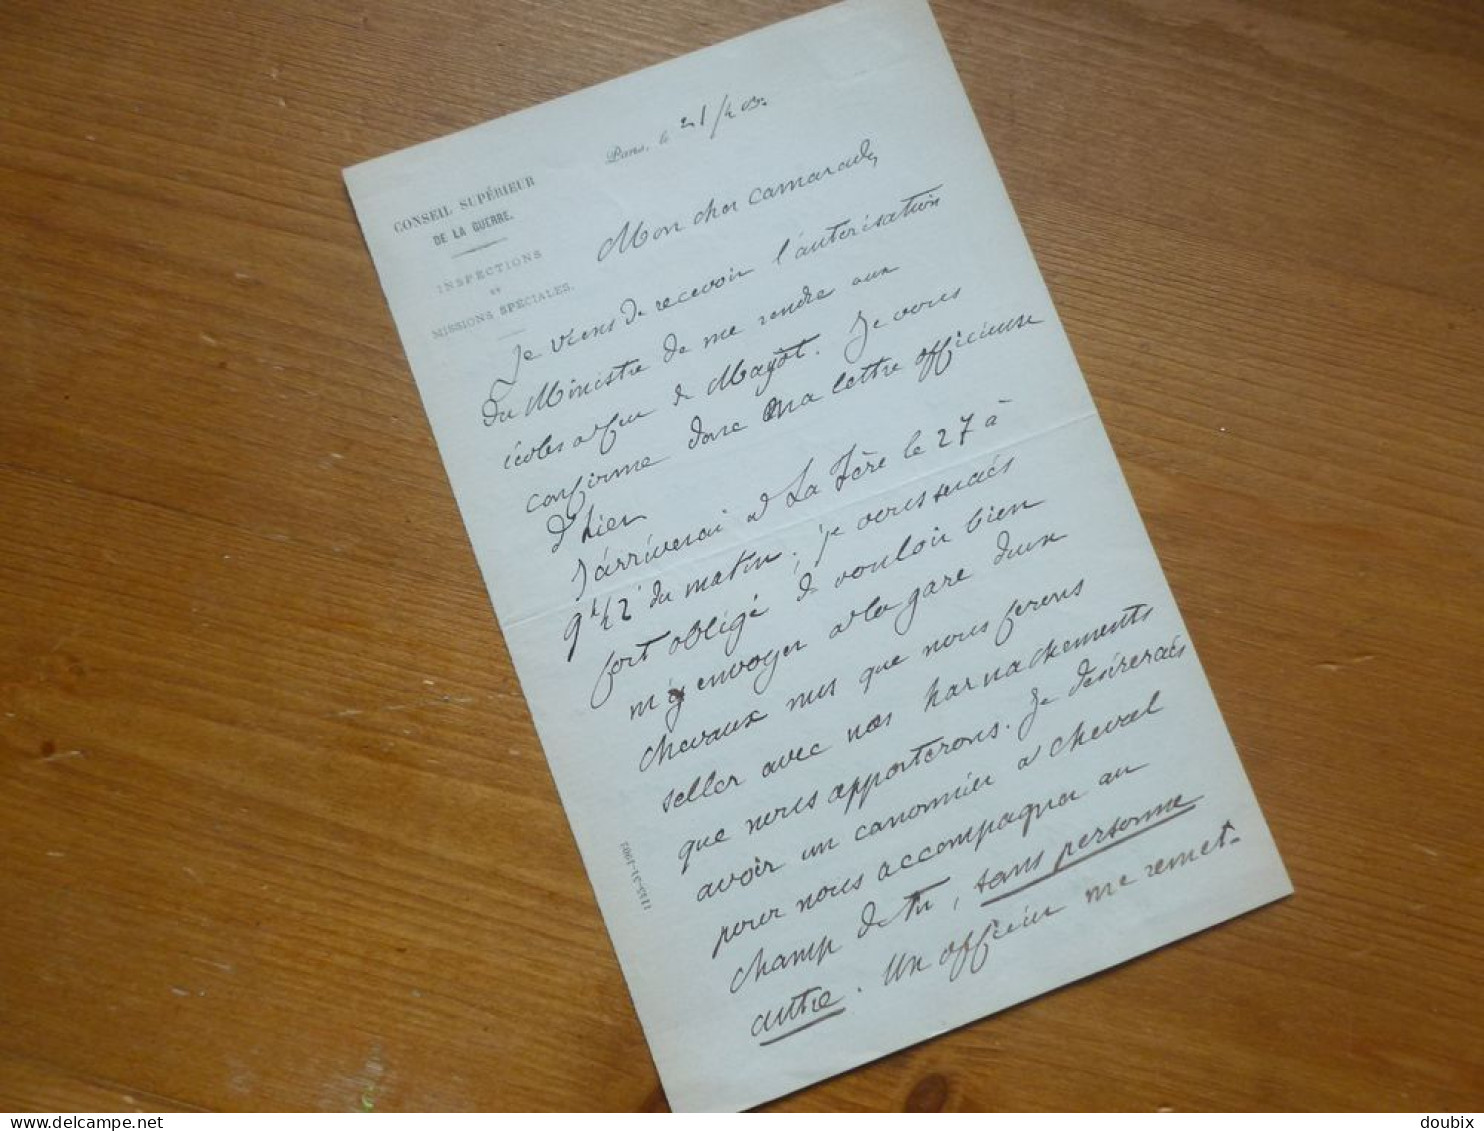 Paris, le 21/4 03.
CONSEIL SUPÉRIEUR
DE LA GUERRE.
INSPECTIONS
ET
MISSIONS SPÉCIALES.
Mon cher camarade,
Je viens de recevoir l'autorisation
du Ministre de me rendre aux
écoles à feu de Mayot. Je vous
confirme donc ma lettre officieuse
d'hier
J'arriverai à La Fère le 27 à
9h42' du matin; je vous serais
fort obligé de vouloir bien
m'y envoyer à la gare deux
chevaux nus que nous ferons
seller avec nos harnachements
que nous apporterons. Je désirerais
avoir un canonnier à cheval
pour nous accompagner au
champ de tir, sans personne
autre. Un officier me remet-
1135-31-1902
doubix
delcampe.net